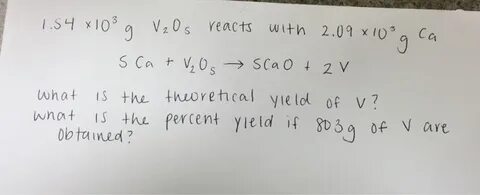 1.54 ×10³ g V₂O₅ reacts with 2.09 ×10³ g Ca
5 Ca + V₂O₅ → 5CaO + 2 V
what is the theoretical yield of V?
what is the percent yield if 803g of V are
obtained?